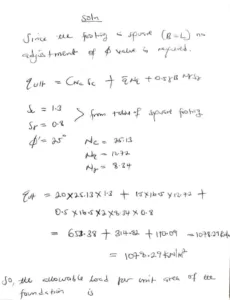 Soln
Since the footing is square (B=L) no
adjustment of ϕ value is required.
qult = CNc Sc + q̄Nq + 0.5γB Nγ Sγ
Sc = 1.3
Sγ = 0.8 > from table of square footing
ϕ' = 25° Nc = 25.13
Nq = 12.72
Nγ = 8.34
qult = 20×25.13×1.3 + 1.5×16.5×12.72 +
0.5×16.5×2×8.34×0.8
= 653.38 + 314.82 + 110.09 = 1078.29
= 1078.29 kN/m²
So, the allowable load per unit area of the
foundation is